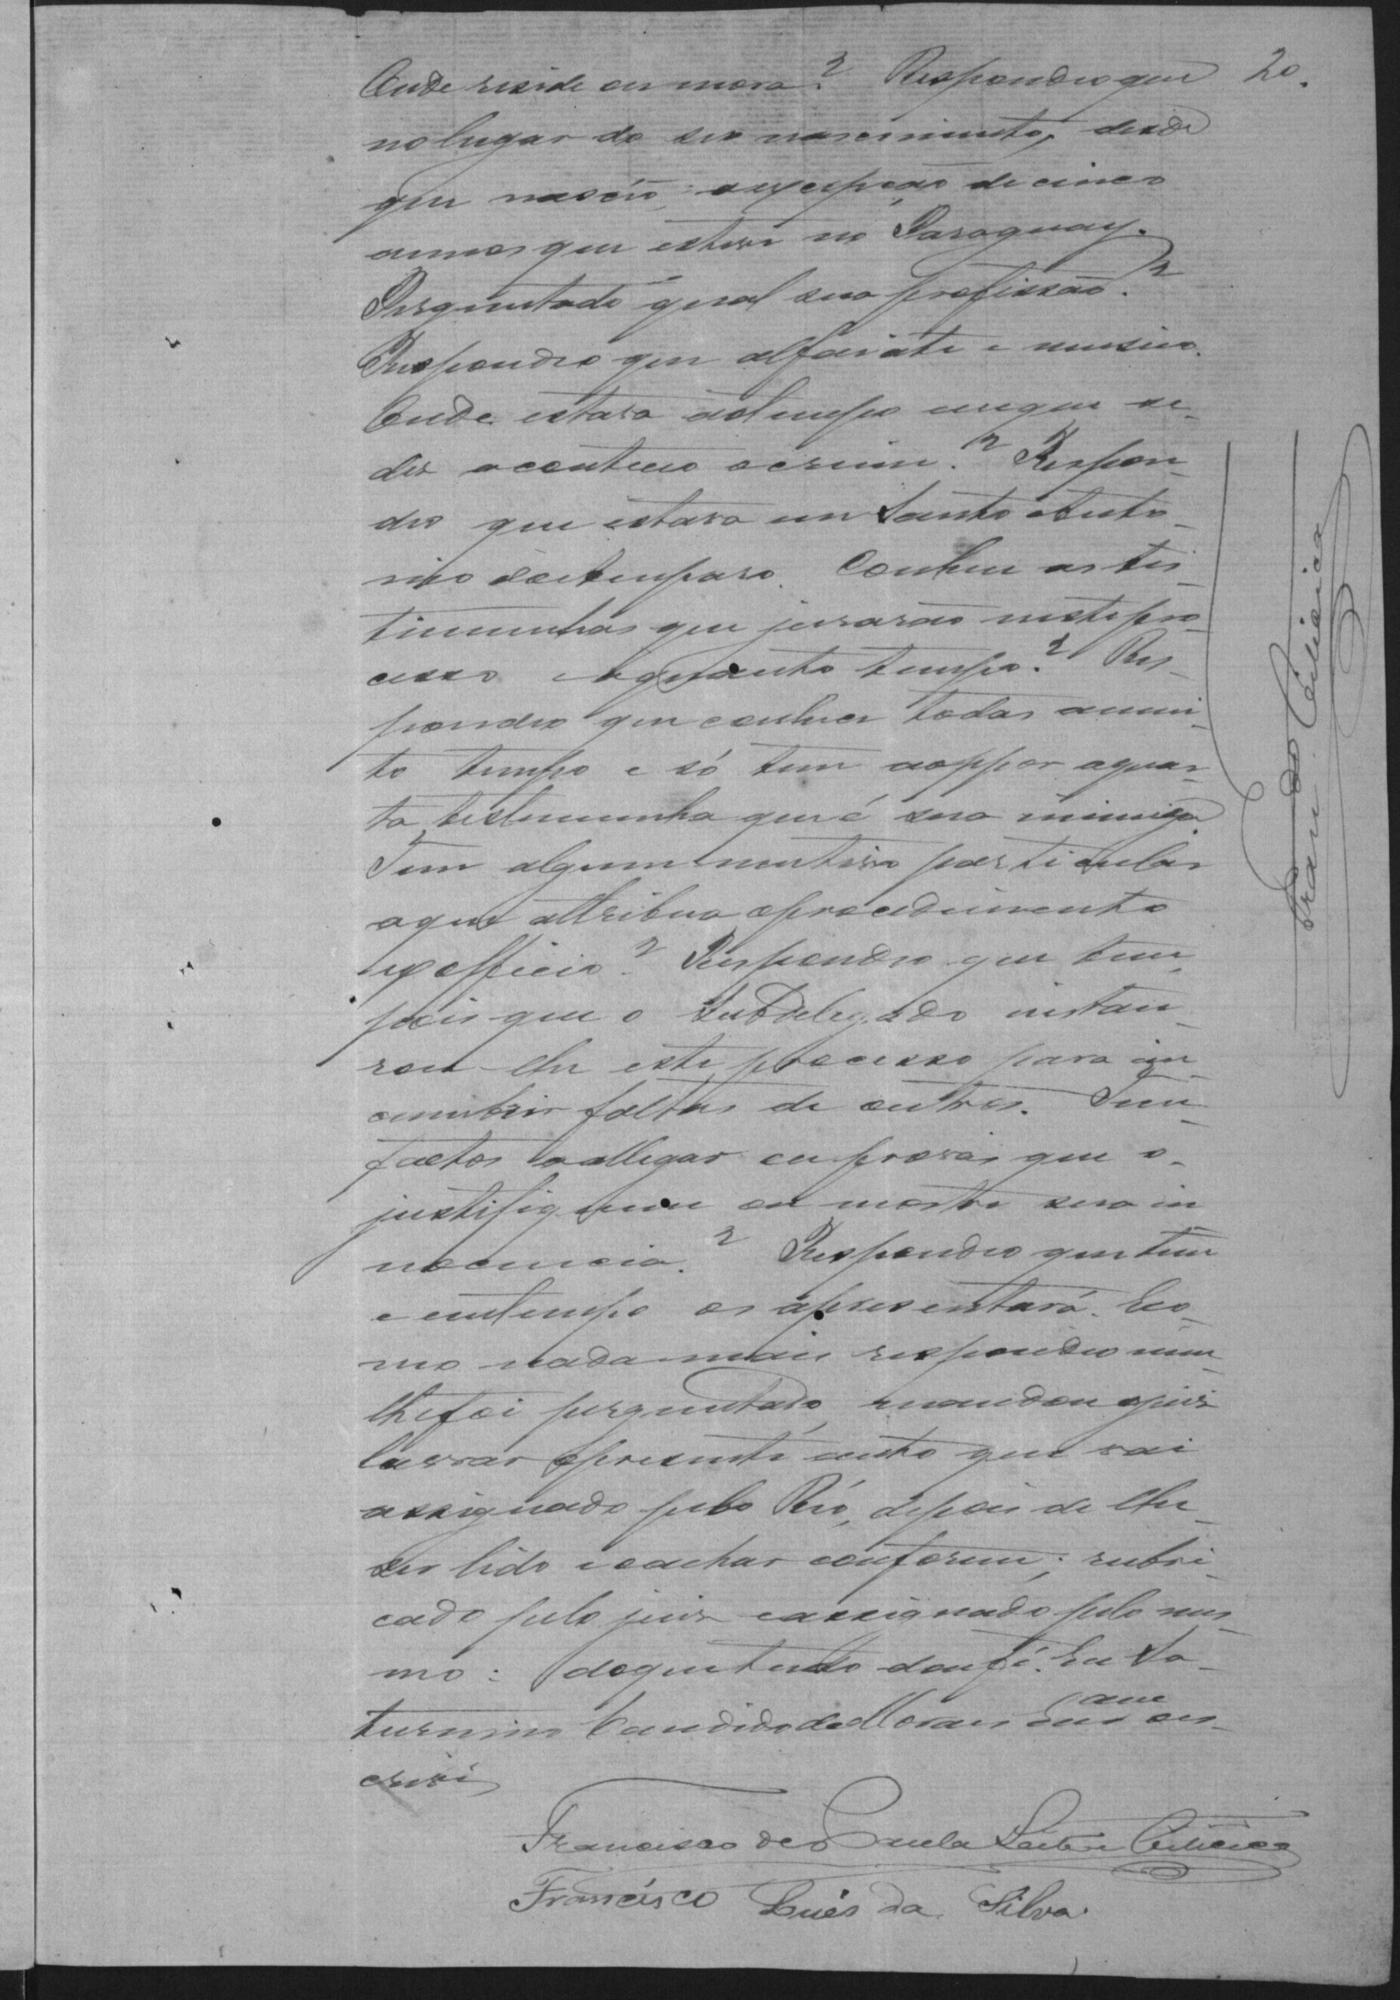 20.
Onde reside ou mora? Respondeo que
no lugar do seu nascimento, desde
que nasceo, a excepção de cinco
annos que esteve no Paraguay.
Perguntado qual sua profissão?
Respondeo que alfaiate e musico.
Onde estava ao tempo em que se
dis aconteceo o crime? Respon-
deo que estava em Santo Anto-
nio do
Conhece as tes-
timunhas que jurarão neste pro-
cesso e a quanto tempo? Res-
pondeo que conhece todas a mui-
to tempo e só tem a oppor a quar-
ta testimunha que é sua inimiga.
Tem algum motivo particular
a que attribua o procedimento
ex officio? Respondeo que tem
pois que o Subdelegado instau-
rou-lhe este processo para in-
cumbrir faltas de outros. Tem
factos a allegar ou provas que o
justifiquem ou mostre sua in
nocencia? Respondeo que tem
e em tempo os apresentará. Eco-
mo nada mais respondeo nem
lhe foi perguntado, mandou o juis
lavrar o presente auto que vai
assignado pelo Réo, depois de lhe
ser lido e o achar conforme; rubri-
cado pelo juis e assignado pelo mes-
mo: do que tudo dou fé. Eu Sa-
turnino Candido de Moraes
que es-
crevi
Francisco de Paula Leite
Francisco Luis da Silva.